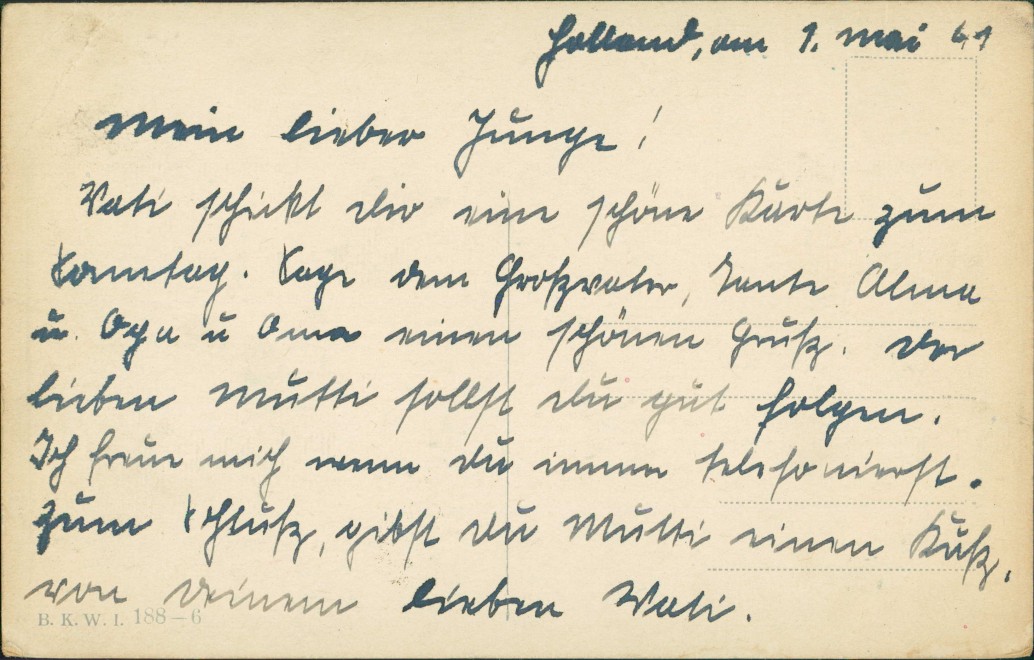 Holland, am 1. Mai 41
Mein lieber Junge!
Vati schickt dir eine schöne Karte zum
Sonntag. Sage dem Großvater, Tante Alma
u. Opa u Oma einen schönen Gruß. Der
lieben Mutti sollst du gut folgen.
Ich freue mich wenn du immer telefonierst.
Zum Schluß, gibst du Mutti einen Kuß,
von deinem lieben Vati.
B. K. W. I. 188–6